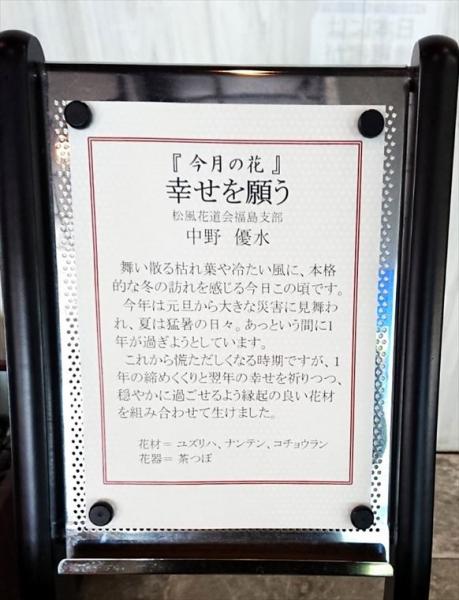 『今月の花』
幸せを願う
松風花道会福島支部
中野 優水
舞い散る枯れ葉や冷たい風に、本格
的な冬の訪れを感じる今日この頃です。
今年は元旦から大きな災害に見舞わ
れ、夏は猛暑の日々。あっという間に1
年が過ぎようとしています。
これから慌ただしくなる時期ですが、1
年の締めくくりと翌年の幸せを祈りつつ、
穏やかに過ごせるよう縁起の良い花材
を組み合わせて生けました。
花材＝ ユズリハ、ナンテン、コチョウラン
花器＝ 茶つぼ